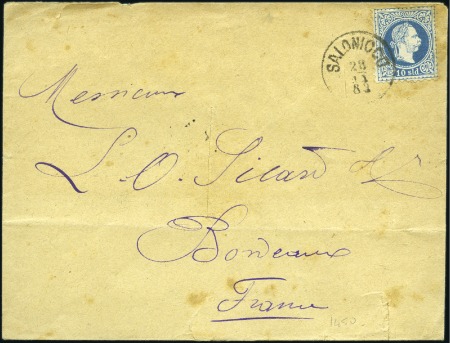 SALONICCO
28
11
83
10 sld
Messieurs
L. O. Sicard
Bordeaux
France
1450